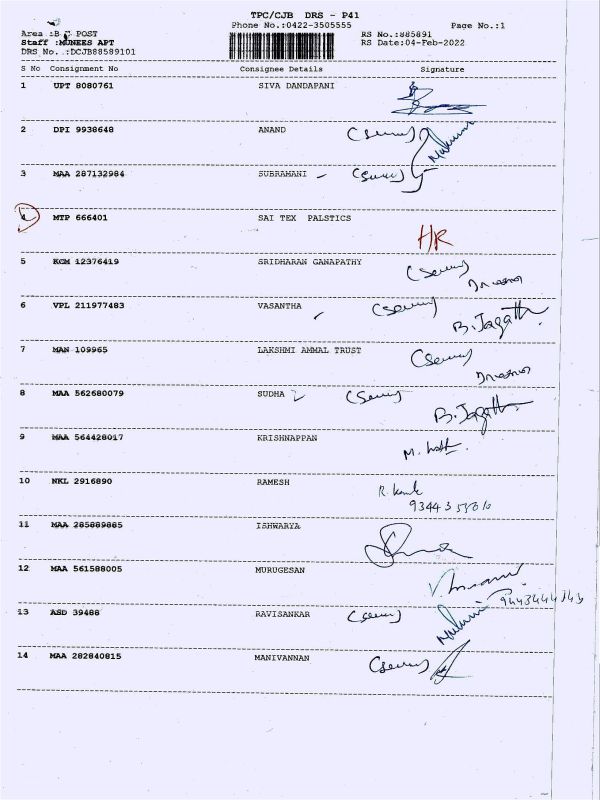 TPC/CJB DRS - P41
Phone No.:0422-3505555 Page No.:1
Area : POST RS No.:885891
Staff :MUNEES APT RS Date:04-Feb-2022
DRS No. :DCJB88589101
S No Consignment No Consignee Details Signature
1 UPT 8080761 SIVA DANDAPANI
2 DPI 9938648 ANAND
3 MAA 287132984 SUBRAMANI
4 MTP 666401 SAI TEX PALSTICS HR
5 KCM 12376419 SRIDHARAN GANAPATHY
6 VPL 211977483 VASANTHA B. Jagath
7 MAN 109965 LAKSHMI AMMAL TRUST
8 MAA 562680079 SUDHA B. Jagath
9 MAA 564428017 KRISHNAPPAN
10 NKL 2916890 RAMESH
11 MAA 285889885 ISHWARYA
12 MAA 561588005 MURUGESAN
13 ASD 39488 RAVISANKAR
14 MAA 282840815 MANIVANNAN